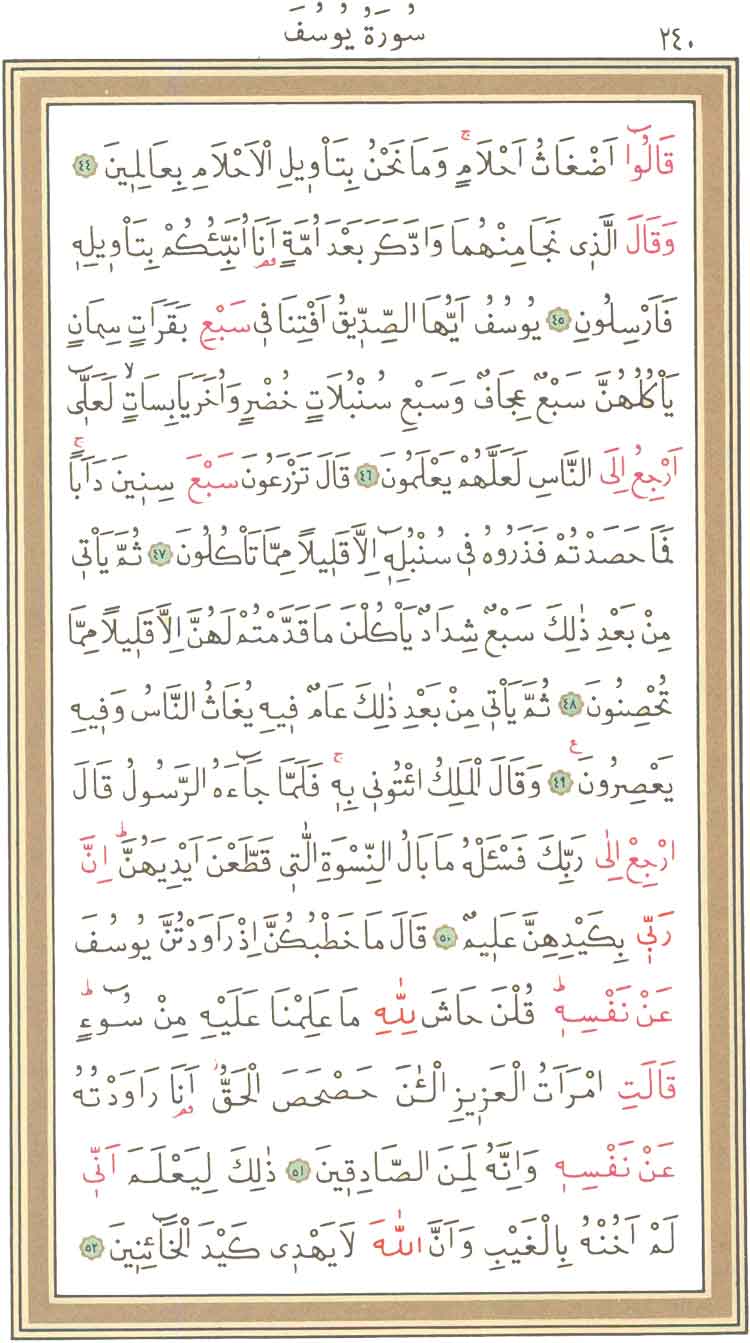 سُورَةُ يُوسُفَ ٢٤٠
قَالُٓوا اَضْغَاثُ اَحْلَامٍۚ وَمَا نَحْنُ بِتَاْو۪يلِ الْاَحْلَامِ بِعَالِم۪ينَ ٤٤
وَقَالَ الَّذ۪ي نَجَا مِنْهُمَا وَادَّكَرَ بَعْدَ اُمَّةٍ اَنَا۬ اُنَبِّئُكُمْ بِتَاْو۪يلِه۪
فَاَرْسِلُونِ ٤٥ يُوسُفُ اَيُّهَا الصِّدّ۪يقُ اَفْتِنَا ف۪ي سَبْعِ بَقَرَاتٍ سِمَانٍ
يَاْكُلُهُنَّ سَبْعٌ عِجَافٌ وَسَبْعِ سُنْبُلَاتٍ خُضْرٍ وَاُخَرَ يَابِسَاتٍۙ لَعَلّ۪ٓي
اَرْجِعُ اِلَى النَّاسِ لَعَلَّهُمْ يَعْلَمُونَ ٤٦ قَالَ تَزْرَعُونَ سَبْعَ سِن۪ينَ دَاَبًاۚ
فَمَا حَصَدْتُمْ فَذَرُوهُ ف۪ي سُنْبُلِه۪ٓ اِلَّا قَل۪يلًا مِمَّا تَاْكُلُونَ ٤٧ ثُمَّ يَاْت۪ي
مِنْ بَعْدِ ذٰلِكَ سَبْعٌ شِدَادٌ يَاْكُلْنَ مَا قَدَّمْتُمْ لَهُنَّ اِلَّا قَل۪يلًا مِمَّا
تُحْصِنُونَ ٤٨ ثُمَّ يَاْت۪ي مِنْ بَعْدِ ذٰلِكَ عَامٌ ف۪يهِ يُغَاثُ النَّاسُ وَف۪يهِ
يَعْصِرُونَ۟ ٤٩ وَقَالَ الْمَلِكُ ائْتُون۪ي بِه۪ۚ فَلَمَّا جَٓاءَهُ الرَّسُولُ قَالَ
ارْجِعْ اِلٰى رَبِّكَ فَسْـَٔلْهُ مَا بَالُ النِّسْوَةِ الّٰت۪ي قَطَّعْنَ اَيْدِيَهُنَّۜ اِنَّ
رَبّ۪ي بِكَيْدِهِنَّ عَل۪يمٌ ٥٠ قَالَ مَا خَطْبُكُنَّ اِذْ رَاوَدْتُنَّ يُوسُفَ
عَنْ نَفْسِه۪ۜ قُلْنَ حَاشَ لِلّٰهِ مَا عَلِمْنَا عَلَيْهِ مِنْ سُٓوءٍۜ
قَالَتِ امْرَاَتُ الْعَز۪يزِ الْـٰٔنَ حَصْحَصَ الْحَقُّۘ اَنَا۬ رَاوَدْتُهُ
عَنْ نَفْسِه۪ وَاِنَّهُ لَمِنَ الصَّادِق۪ينَ ٥١ ذٰلِكَ لِيَعْلَمَ اَنّ۪ي
لَمْ اَخُنْهُ بِالْغَيْبِ وَاَنَّ اللّٰهَ لَا يَهْد۪ي كَيْدَ الْخَٓائِن۪ينَ ٥٢